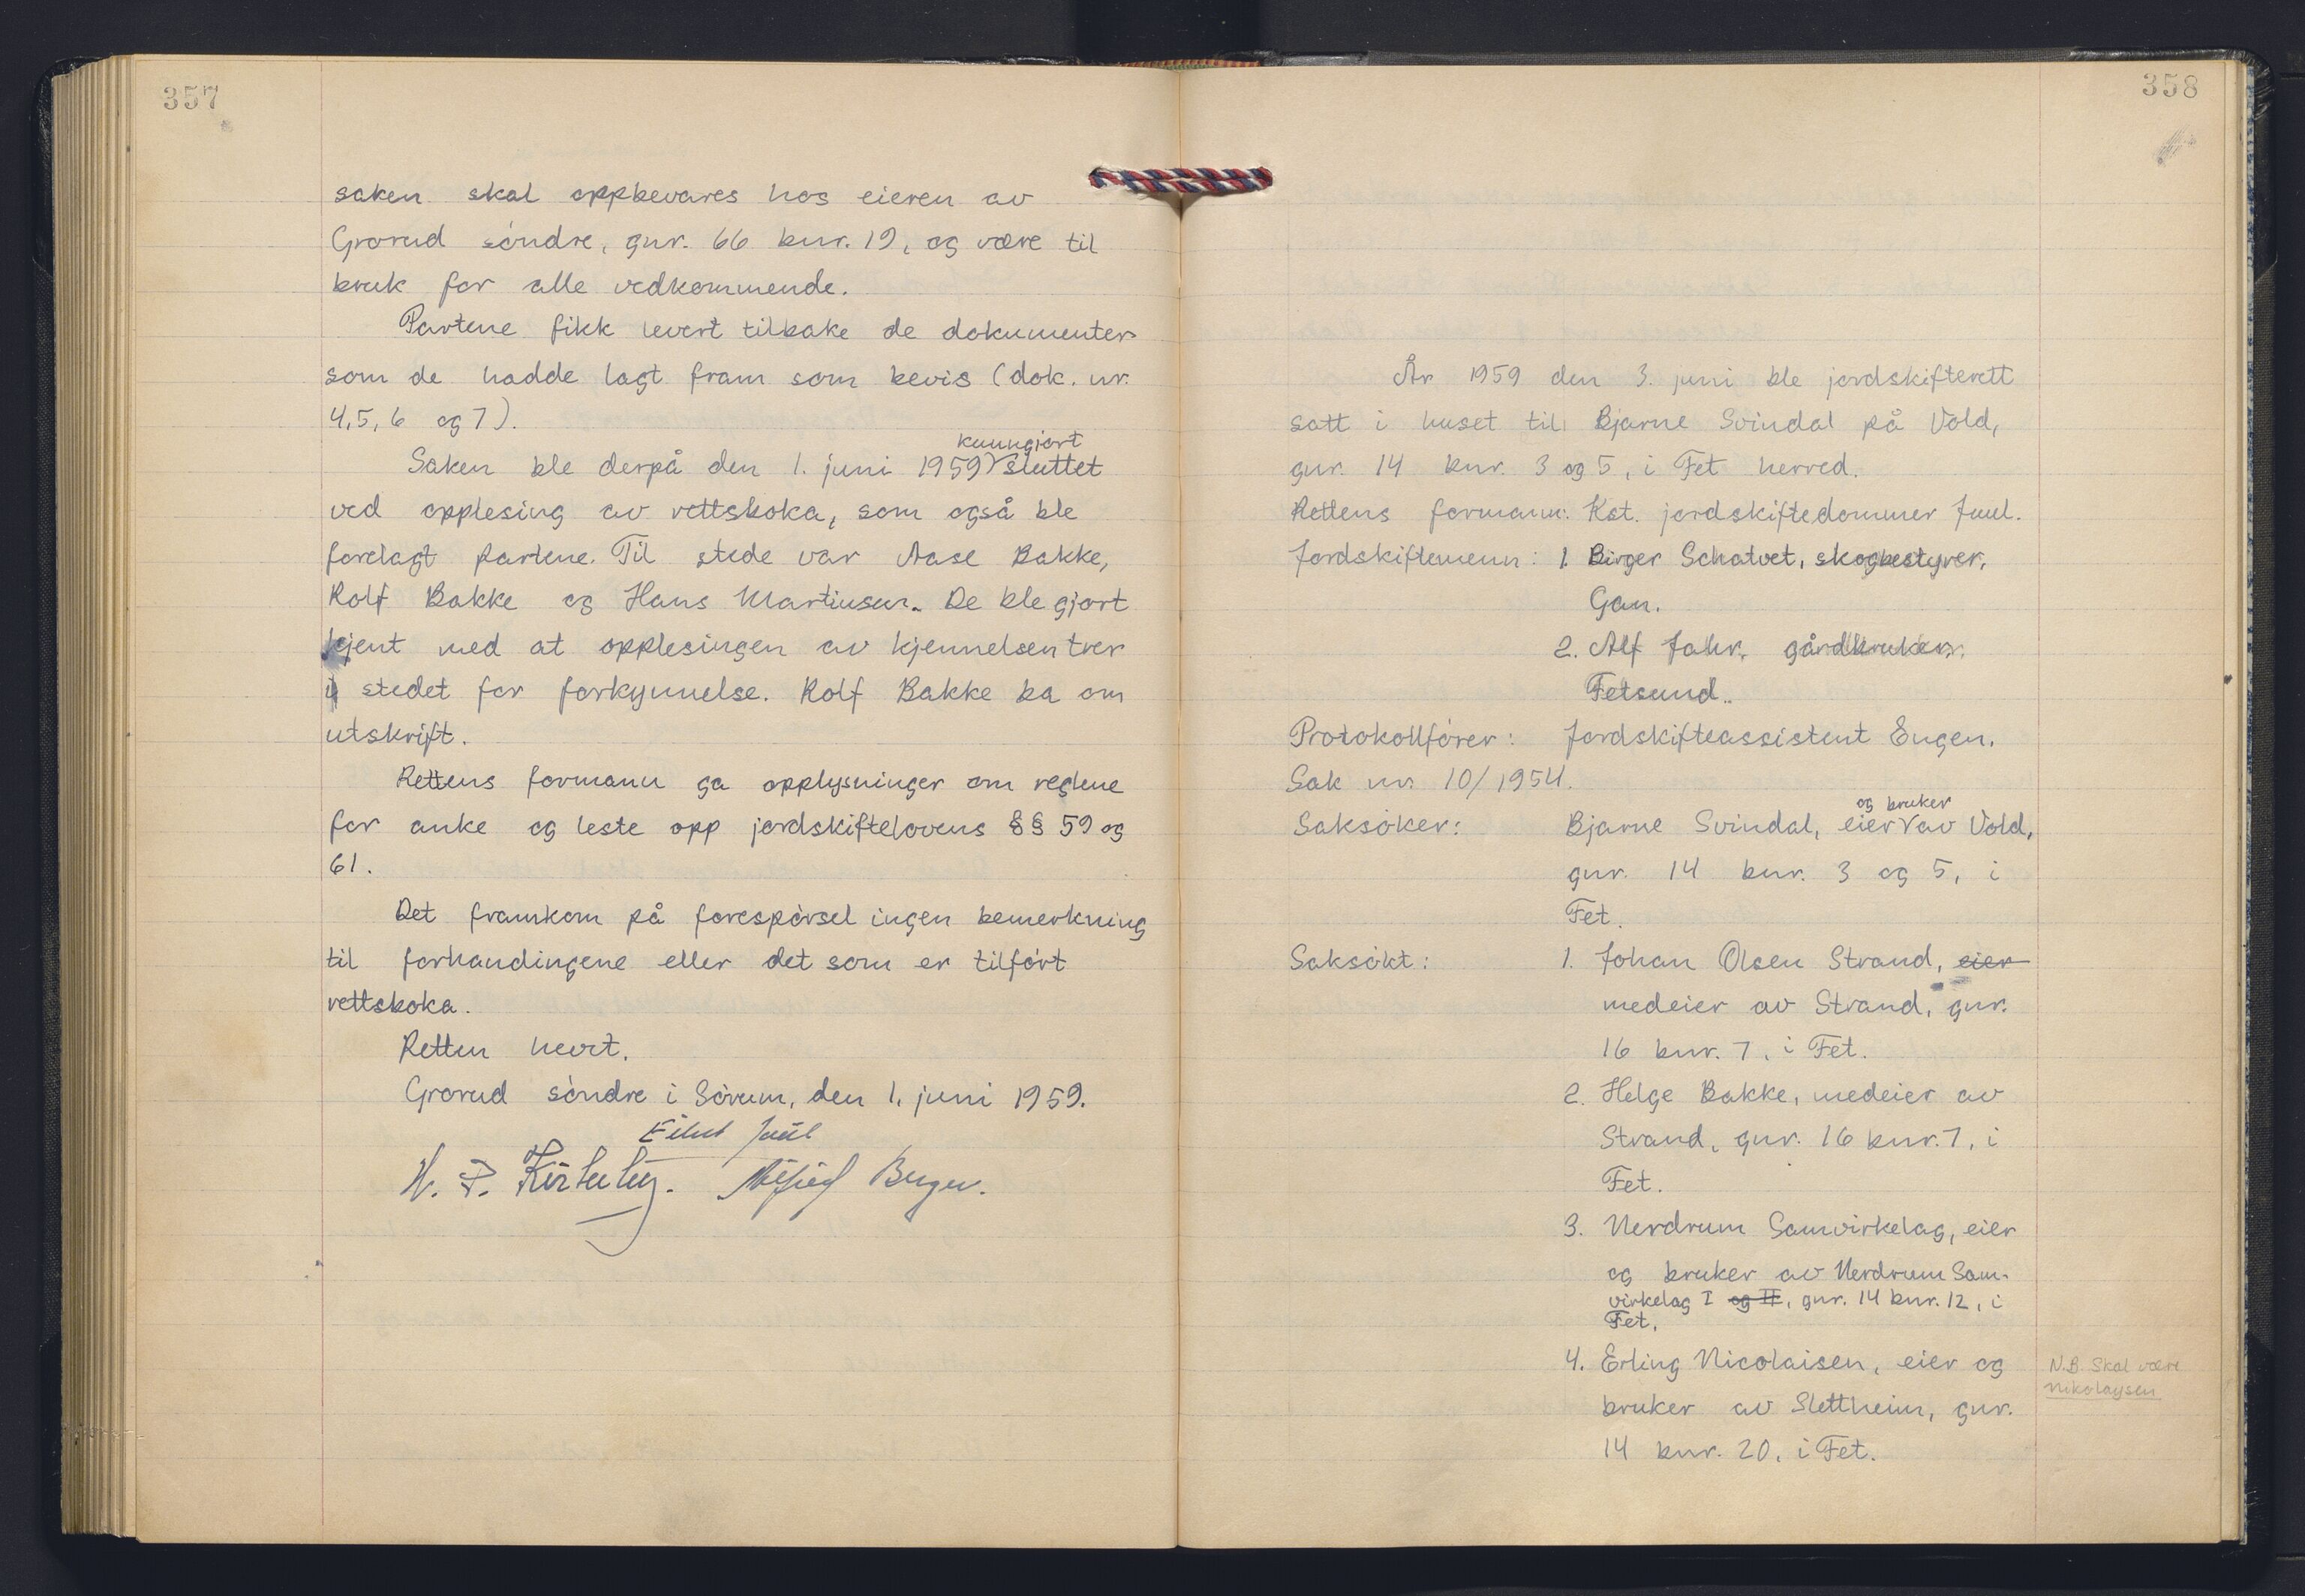 357
saken skal oppbevares hos eieren av
Grorud söndre, gnr. 66 bnr. 19, og være til
bruk for alle vedkommende.
Partene fikk levert tilbake de dokumenter
som de hadde lagt fram som bevis (dok. nr.
4, 5, 6 og 7).
kunngjort
Saken ble derpå den 1. juni 1959 sluttet
ved opplesing av rettsboka, som også ble
forelagt partene. Til stede var Aase Bakke,
Rolf Bakke og Hans Martinsen. De ble gjort
kjent med at opplesingen av kjennelsen trer
i stedet for forkynnelse. Rolf Bakke ba om
utskrift.
Rettens formann ga opplysninger om reglene
for anke og leste opp jordskiftelovens §§ 59 og
61.
Det framkom på forespörsel ingen bemerkning
til forhandingene eller det som er tilfört
rettsboka.
Retten hevet.
Grorud söndre i Sörum, den 1. juni 1959.
Eilert Juul
H. P. Berger.
358
År 1959 den 3. juni ble jordskifterett
satt i huset til Bjarne Svindal på Vold,
gnr. 14 bnr. 3 og 5, i Fet herred.
Rettens formann: Kst. jordskiftedommer Juul.
Jordskiftemenn: 1. Birger Schatvet, skogbestyrer,
Gan.
2. Alf Jahr, gårdbruker,
Fetsund.
Protokollförer: Jordskifteassistent Engen.
Sak nr. 10/1954.
og bruker
Saksöker: Bjarne Svindal, eier av Vold,
gnr. 14 bnr. 3 og 5, i
Fet.
Saksökt: 1. Johan Olsen Strand, eier
medeier av Strand, gnr.
16 bnr. 7, i Fet.
2. Helge Bakke, medeier av
Strand, gnr. 16 bnr. 7, i
Fet.
3. Nerdrum Samvirkelag, eier
og bruker av Nerdrum Sam-
virkelag I og II, gnr. 14 bnr. 12, i
Fet.
4. Erling Nicolaisen, eier og
bruker av Slettheim, gnr.
14 bnr. 20, i Fet.
N.B. Skal være
Nikolaysen